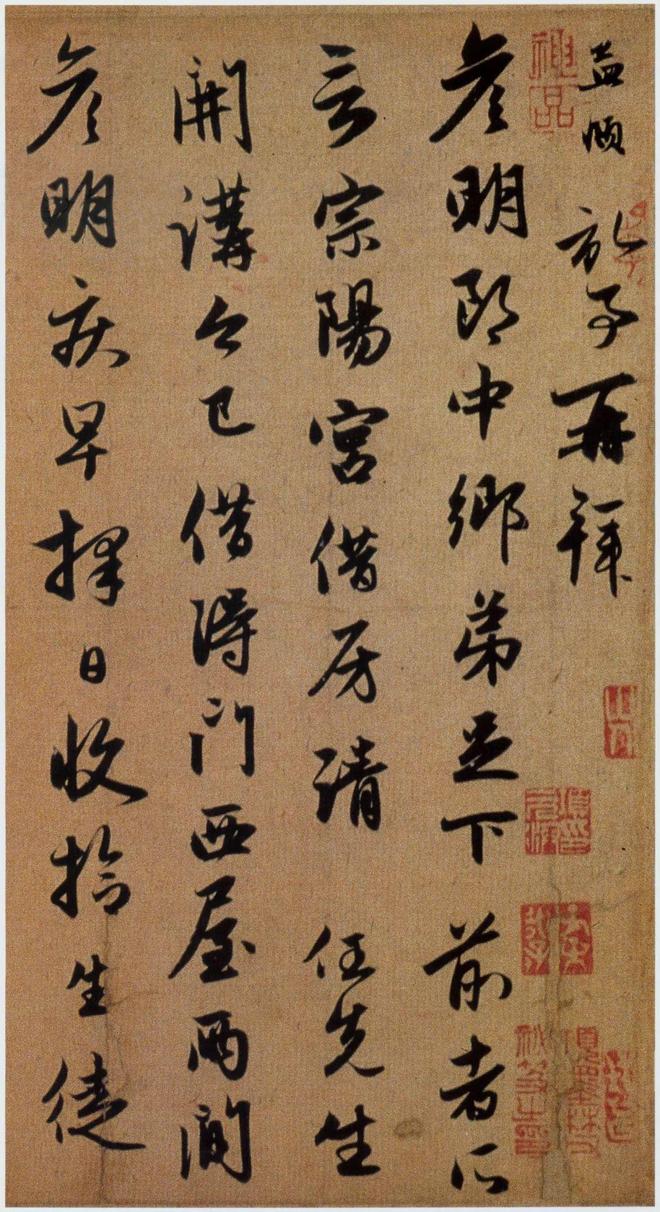 孟頫 於子再拜
彦明郎中鄉弟足下 前者所
言宗陽宮借房請 任先生
開講今已借得門西屋兩間
彦明疾早擇日收拾生徒